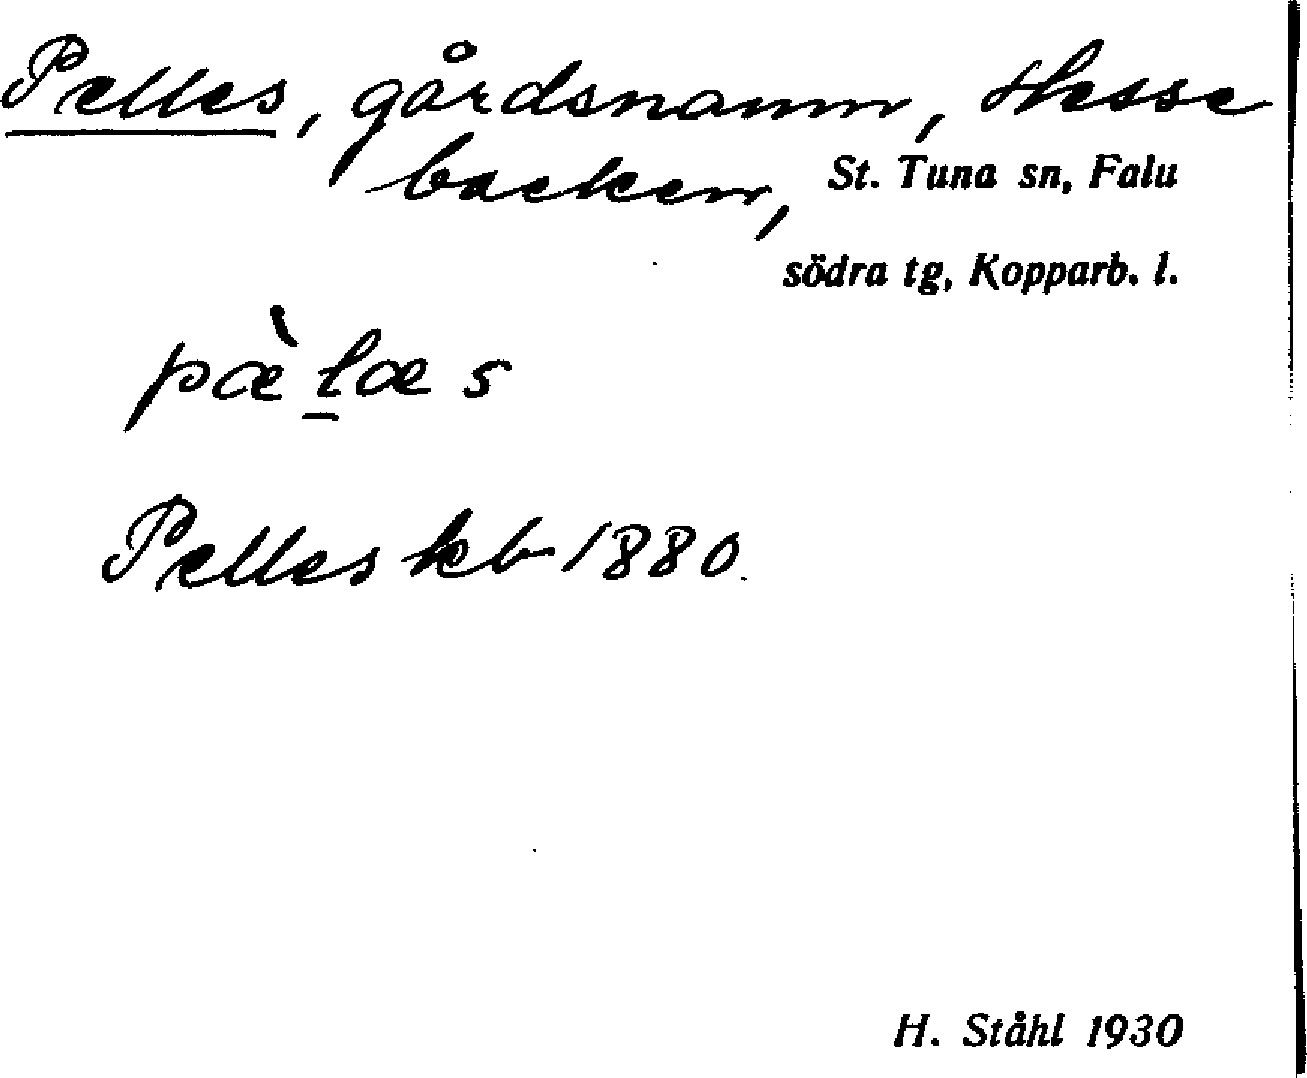 Pelles, gårdsnamn, Hesse
backen, St. Tuna sn, Falu
södra tg, Kopparb. l.
pæ̀l̠æs
Pelles kb 1880.
H. Ståhl 1930